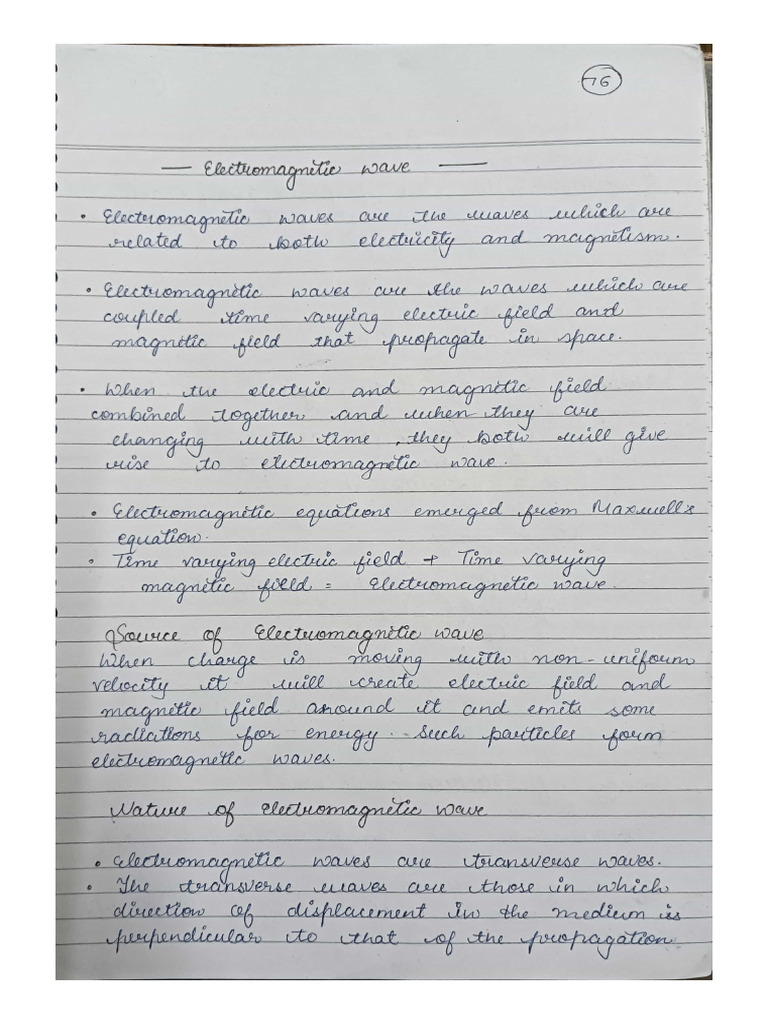 76
— Electromagnetic wave —
• Electromagnetic waves are the waves which are
related to both electricity and magnetism.
• Electromagnetic waves are the waves which are
coupled time varying electric field and
magnetic field that propagate in space.
• When the electric and magnetic field
combined together and when they are
changing with time, they both will give
rise to electromagnetic wave.
• Electromagnetic equations emerged from Maxwell's
equation.
• Time varying electric field + Time varying
magnetic field = Electromagnetic wave.
Source of Electromagnetic wave
When charge is moving with non-uniform
velocity it will create electric field and
magnetic field around it and emits some
radiations for energy. Such particles form
electromagnetic waves.
Nature of Electromagnetic wave
• Electromagnetic waves are transverse waves.
• The transverse waves are those in which
direction of displacement in the medium is
perpendicular to that of the propagation